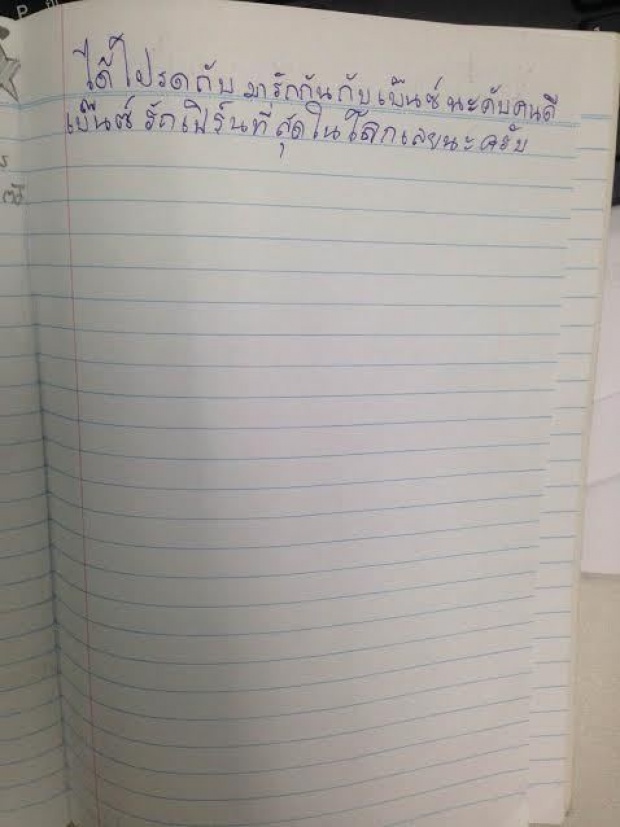 ได้โปรดกับ มารักกันกับเบ๊นซ์ นะคับคนดี
เบ๊นซ์ รักเฟิร์นที่สุดในโลกเลยนะครับ